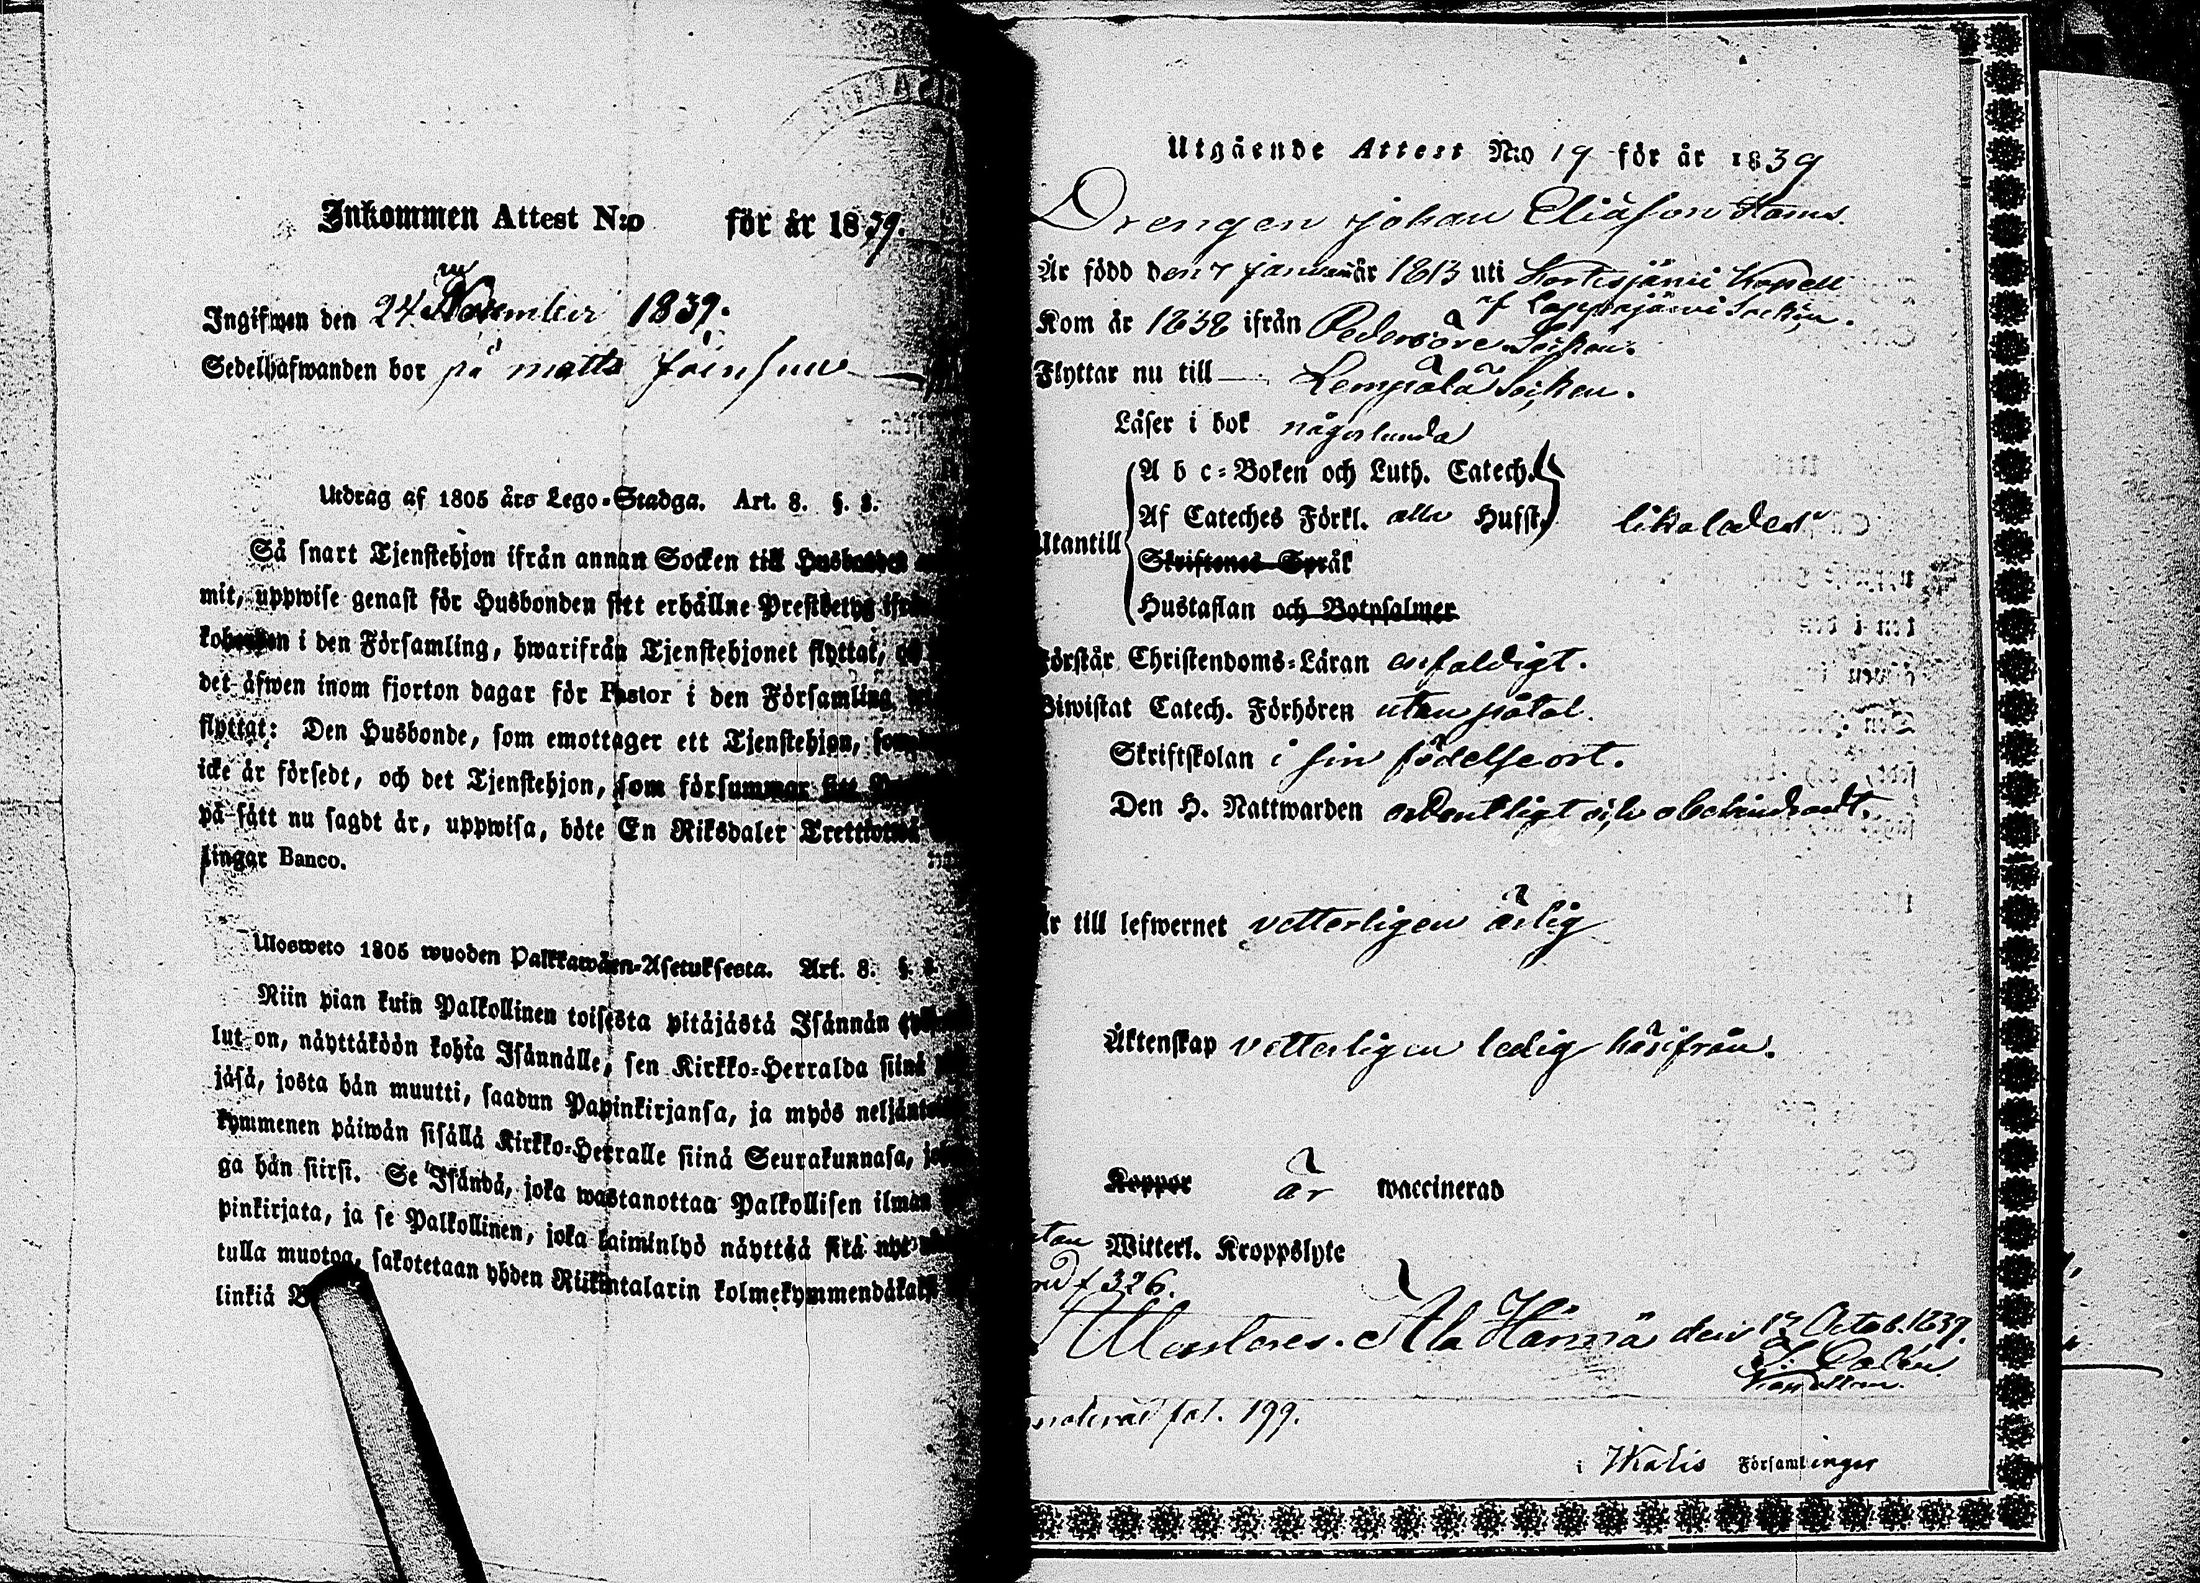 Inkommen Attest N:o för år 1839.
Ingifwen den 24 November 1839.
Sedelhafwanden bor på matts
Utdrag af 1805 års Lego-Stadga. Art. 8. §. 8.
Så snart Tjenstehjon ifrån annan Socken till Husbonden
mit, uppwise genast för Husbonden sitt erhållne Prestbetyg ifrån
i den Församling, hwarifrån Tjenstehjonet flyttat,
det äfwen inom fjorton dagar för Pastor i den Församling
flyttat: Den Husbonde, som emottager ett Tjenstehjon, som
icke är försedt, och det Tjenstehjon, som försummar sitt
på sätt nu sagdt är, uppwisa, böte En Riksdaler Trettiotwå
lingar Banco.
Ulosweto 1805 wuoden Palkkawäen-Asetuksesta. Art. 8. §. 8.
Niin pian kuin Palkollinen toisesta pitäjästä Isännän
lut on, näyttäköön kohta Isännälle, sen Kirkko-Herralda siinä
jäsä, josta hän muutti, saadun Papinkirjansa, ja myös neljäntoista
kymmenen päiwän sisällä Kirkko-Herralle siinä Seurakunnasa,
ga hän siirsi. Se Isändä, joka wastanottaa Palkollisen ilman
pinkirjata, ja se Palkollinen, joka laiminlyö näyttää sitä nyt
tulla muotoa, sakotetaan yhden Riikintalarin kolmekymmendäkaksi
linkiä
Utgående Attest N:o 19 för år 1839
Drengen Johan Eliasson
Är född den 7 januari är 1813 uti Kortesjärvi Kapell
af Lappajärvi Socken.
Kom år 1838 ifrån Pedersöre Socken.
Flyttar nu till Lempälä Socken.
Läser i bok någorlunda
A b c-Boken och Luth. Catech.
Af Cateches Förkl. alla Hufst. likaledes
Utantill
Skriftenes Språk
Hustaflan och Botpsalmer
Förstår Christendoms-Läran enfaldigt.
Biwistat Catech. Förhören utan påtal.
Skriftskolan i sin födelseort.
Den H. Nattwarden ordentligt och obehindradt.
Är till lefwernet vetterligen ärlig
Äktenskap vetterligen ledig härifrån.
Koppor är waccinerad
utan Witterl. Kroppslyte
f 326.
den 17 Octob. 1839.
fol. 199.
i Ikalis Församlingar